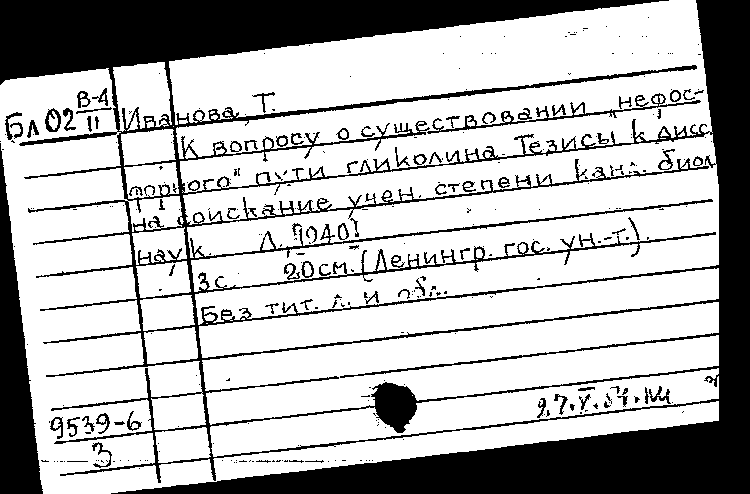 Бл 02 В-4/11
Иванова, Т.
К вопросу о существовании „нефос-
форного" пути гликолиза. Тезисы к дисс.
на соискание учен. степени канд. биол.
наук. Л., [1940]
3 с. 20 см. (Ленингр. гос. ун.-т.).
Без тит. л. и обл.
9539-6
3